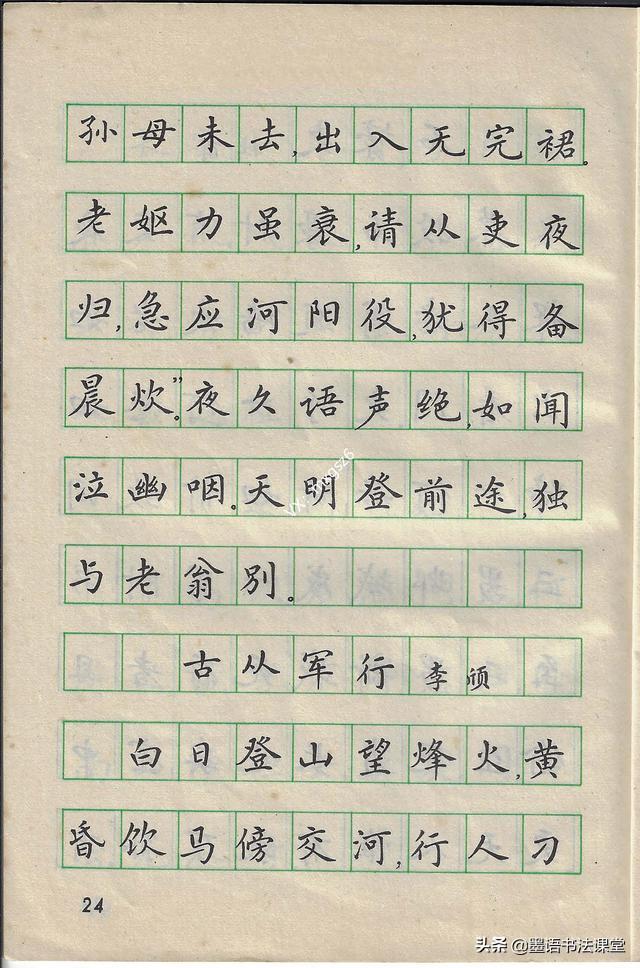 孙母未去,出入无完裙。
老妪力虽衰,请从吏夜
归,急应河阳役,犹得备
晨炊”。夜久语声绝,如闻
泣幽咽。天明登前途,独
与老翁别。
古从军行 李颀
白日登山望烽火,黄
昏饮马傍交河,行人刁
24
头条 @墨语书法课堂